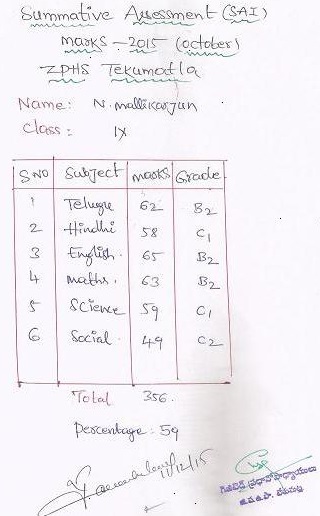 Summative Assessment (SAI)
marks - 2015 (october)
ZPHS Tekumatla
Name: N. mallikarjun
Class: IX
S NO Subject marks Grade
1 Telugu 62 B2
2 Hindhi 58 C1
3 English. 65 B2
4 maths. 63 B2
5 Science 59 C1
6 Social. 49 C2
Total 356.
Percentage: 59
11/12/15
గెజిటెడ్ ప్రధానోపాధ్యాయులు
జి.ప.ఉ.పా.